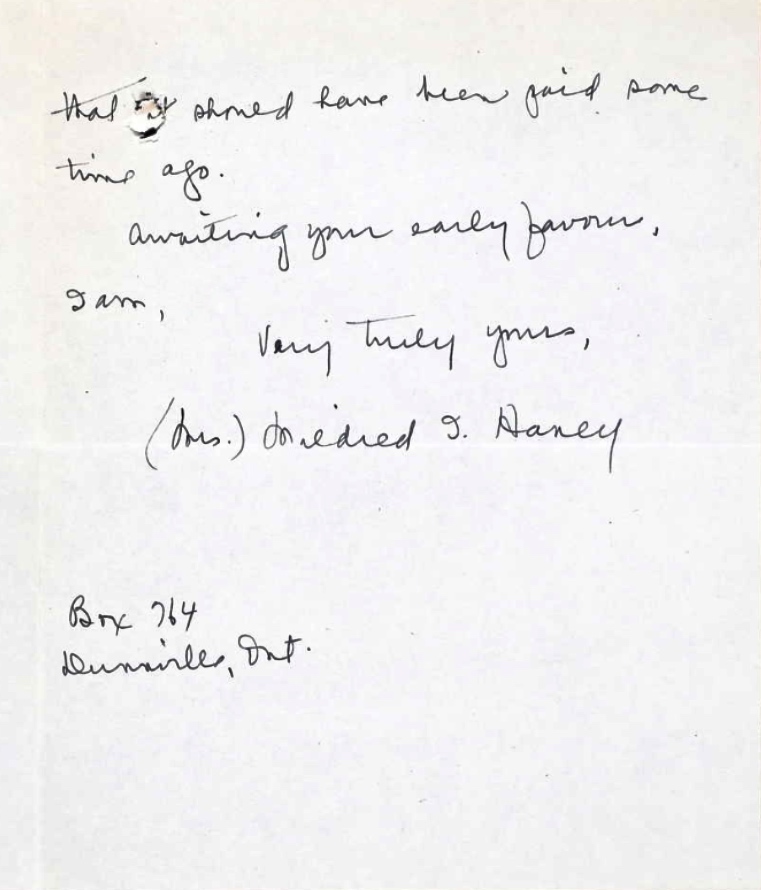 that it should have been paid some
time ago.
Awaiting your early favour,
I am,
Very truly yours,
(Mrs.) Mildred I. Haney
Box 764
Dunnville, Ont.